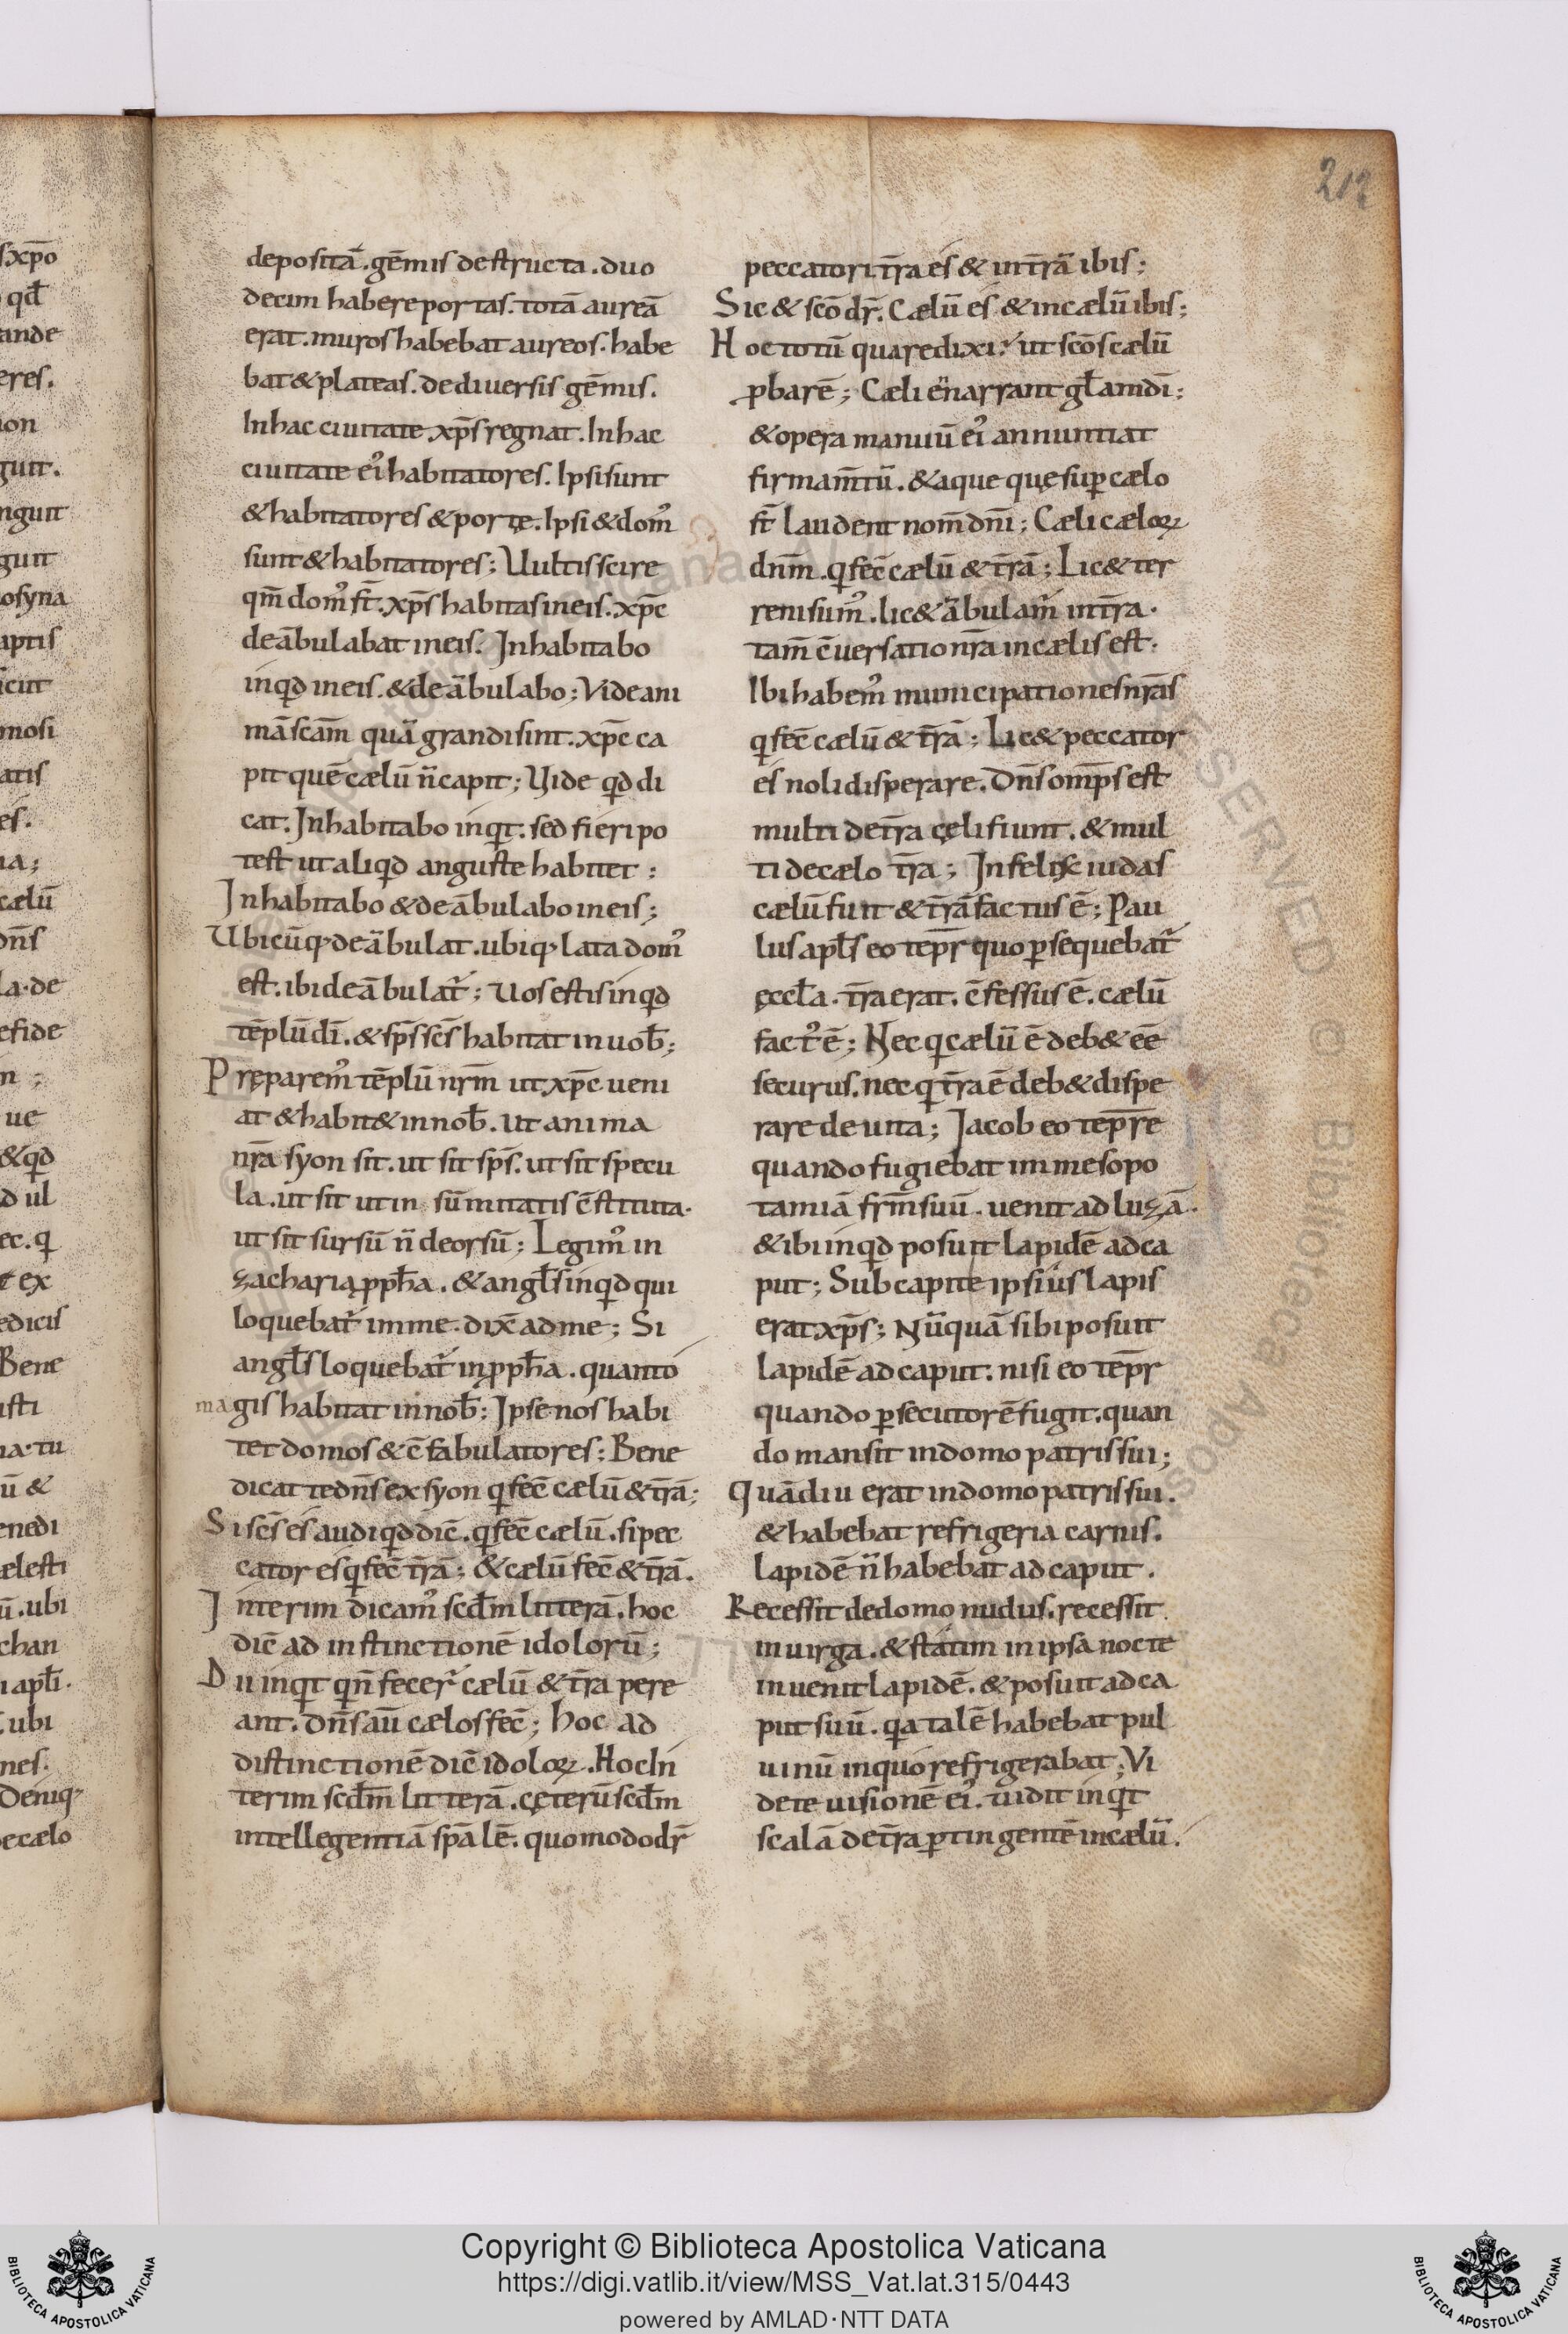 212
depositā. gēmis destructa. duo
decim habere portas. totā aureā
erat. muros habebat aureos. habe
bat & plateas. de diuersis gēmis.
In hac ciuitate xp̄s regnat. In hac
ciuitate ei᾽ habitatores. Ipsi sunt
& habitatores & portę. Ipsi & dom᾽
sunt & habitatores; Uultis scire
qm̄ dom᾽ st̄. xp̄s habitas in eis. xp̄c
deābulabat in eis. Inhabitabo
inqd in eis. & deābulabo; Vide ani
mā scām quā grandi sint. xp̄c ca
pit quē cælū n̄ capit; Vide qd di
cat. Inhabitabo inqt. sed fieri po
test ut aliqd anguste habitet:
Inhabitabo & deābulabo in eis;
Ubicūq; deābulat. ubiq; lata dom᾽
est. ibi deābulat᾽; Uos estis inqd
tēplū dī. & sp̄s sc̄s habitat in uob̄;
Pręparem᾽ tēplū nrm̄ ut xp̄c ueni
at & habit& in nob̄. ut anima
nrā syon sit. ut sit sp̄s. ut sit specu
la. ut sit ut in sūmitatis c̄stituta.
ut sit sursū n̄ deorsū; Legim᾽ in
zacharia ꝓph̄a. & angl̄s inqd qui
loquebat᾽ in me. dix̄ ad me; Si
angl̄s loquebat᾽ in ꝓph̄a. quanto
magis habitat in nob̄: Ipse nos habi
tet domos & c̄fabulatores: Bene
dicat te dn̄s ex syon q fec̄ cælū & tr̄ā;
Si sc̄s es audi qd dic̄. q fec̄ cælū. si pec
cator es q fec̄ tr̄ā: & cælū fec̄ & tr̄ā.
Interim dicam᾽ scdm̄ litterā. hoc
dic̄ ad instinctionē idolorū;
Dii inqt qn̄ fecer᾽ cælū & tr̄a pere
ant. Dn̄s aū cælos fec̄; hoc ad
distinctionē dic̄ idoloꝝ. Hoc In
terim scdm̄ litterā. cęterū scdm̄
intellegentiā spālē. quomodo dr̄
peccatori tr̄a es & in tr̄ā ibis;
Sic & scō dr̄. Cælū es & in cælū ibis;
Hoc totū quare dixi? ut scōs cælū
ꝓbarē; Cæli enarrant gl̄am dī;
& opera manuū ei᾽ annuntiat
firmam̄tū. & aque quę sup cælo
st̄ laudent nom̄ dn̄i; Cæli cæloꝝ
dn̄m. q fec̄ cælū & tr̄ā; Lic& ter
reni sum᾽. lic& ābulam᾽ in tr̄a.
tam̄ c̄uersatio nrā in cælis est.
Ibi habem᾽ municipationes nrās
q fec̄ cælū & tr̄ā; Lic& peccator
es noli disperare. Dn̄s omp̄s est
multi de tr̄a cęli fiunt. & mul
ti de cælo tr̄a; Infelix iudas
cælū fuit & tr̄ā factus ē; Pau
lus apl̄s eo tepr̄ quo ꝑsequebat᾽
ęccl̄a. tr̄a erat. c̄fessus ē. cælū
fact᾽ ē; Nec q cælū ē deb& eē
securus. nec q tr̄a ē deb& dispe
rare de uita; Jacob eo tepr̄e
quando fugiebat in mesopo
tamiā frm̄ suū. uenit ad luzā.
& ibi inqd posuit lapidē ad ca
put; Sub capite ipsius lapis
erat xp̄s; Nūquā sibi posuit
lapidē ad caput. nisi eo tepr̄
quando ꝑsecutorē fugit. quan
do mansit in domo patris sui;
Quādiu erat in domo patris sui.
& habebat refrigeria carnis.
lapidē n̄ habebat ad caput.
Recessit de domo nudus. recessit
in uirga. & statim in ipsa nocte
inuenit lapidē. & posuit ad ca
put suū. qa talē habebat pul
uinū in quo refrigerabat; Vi
dete uisionē ei᾽. uidit inqt
scalā de tr̄a ꝑtingentē in cælū.
Copyright © Biblioteca Apostolica Vaticana
https://digi.vatlib.it/view/MSS_Vat.lat.315/0443
powered by AMLAD·NTT DATA
BIBLIOTECA APOSTOLICA VATICANA
BIBLIOTECA APOSTOLICA VATICANA